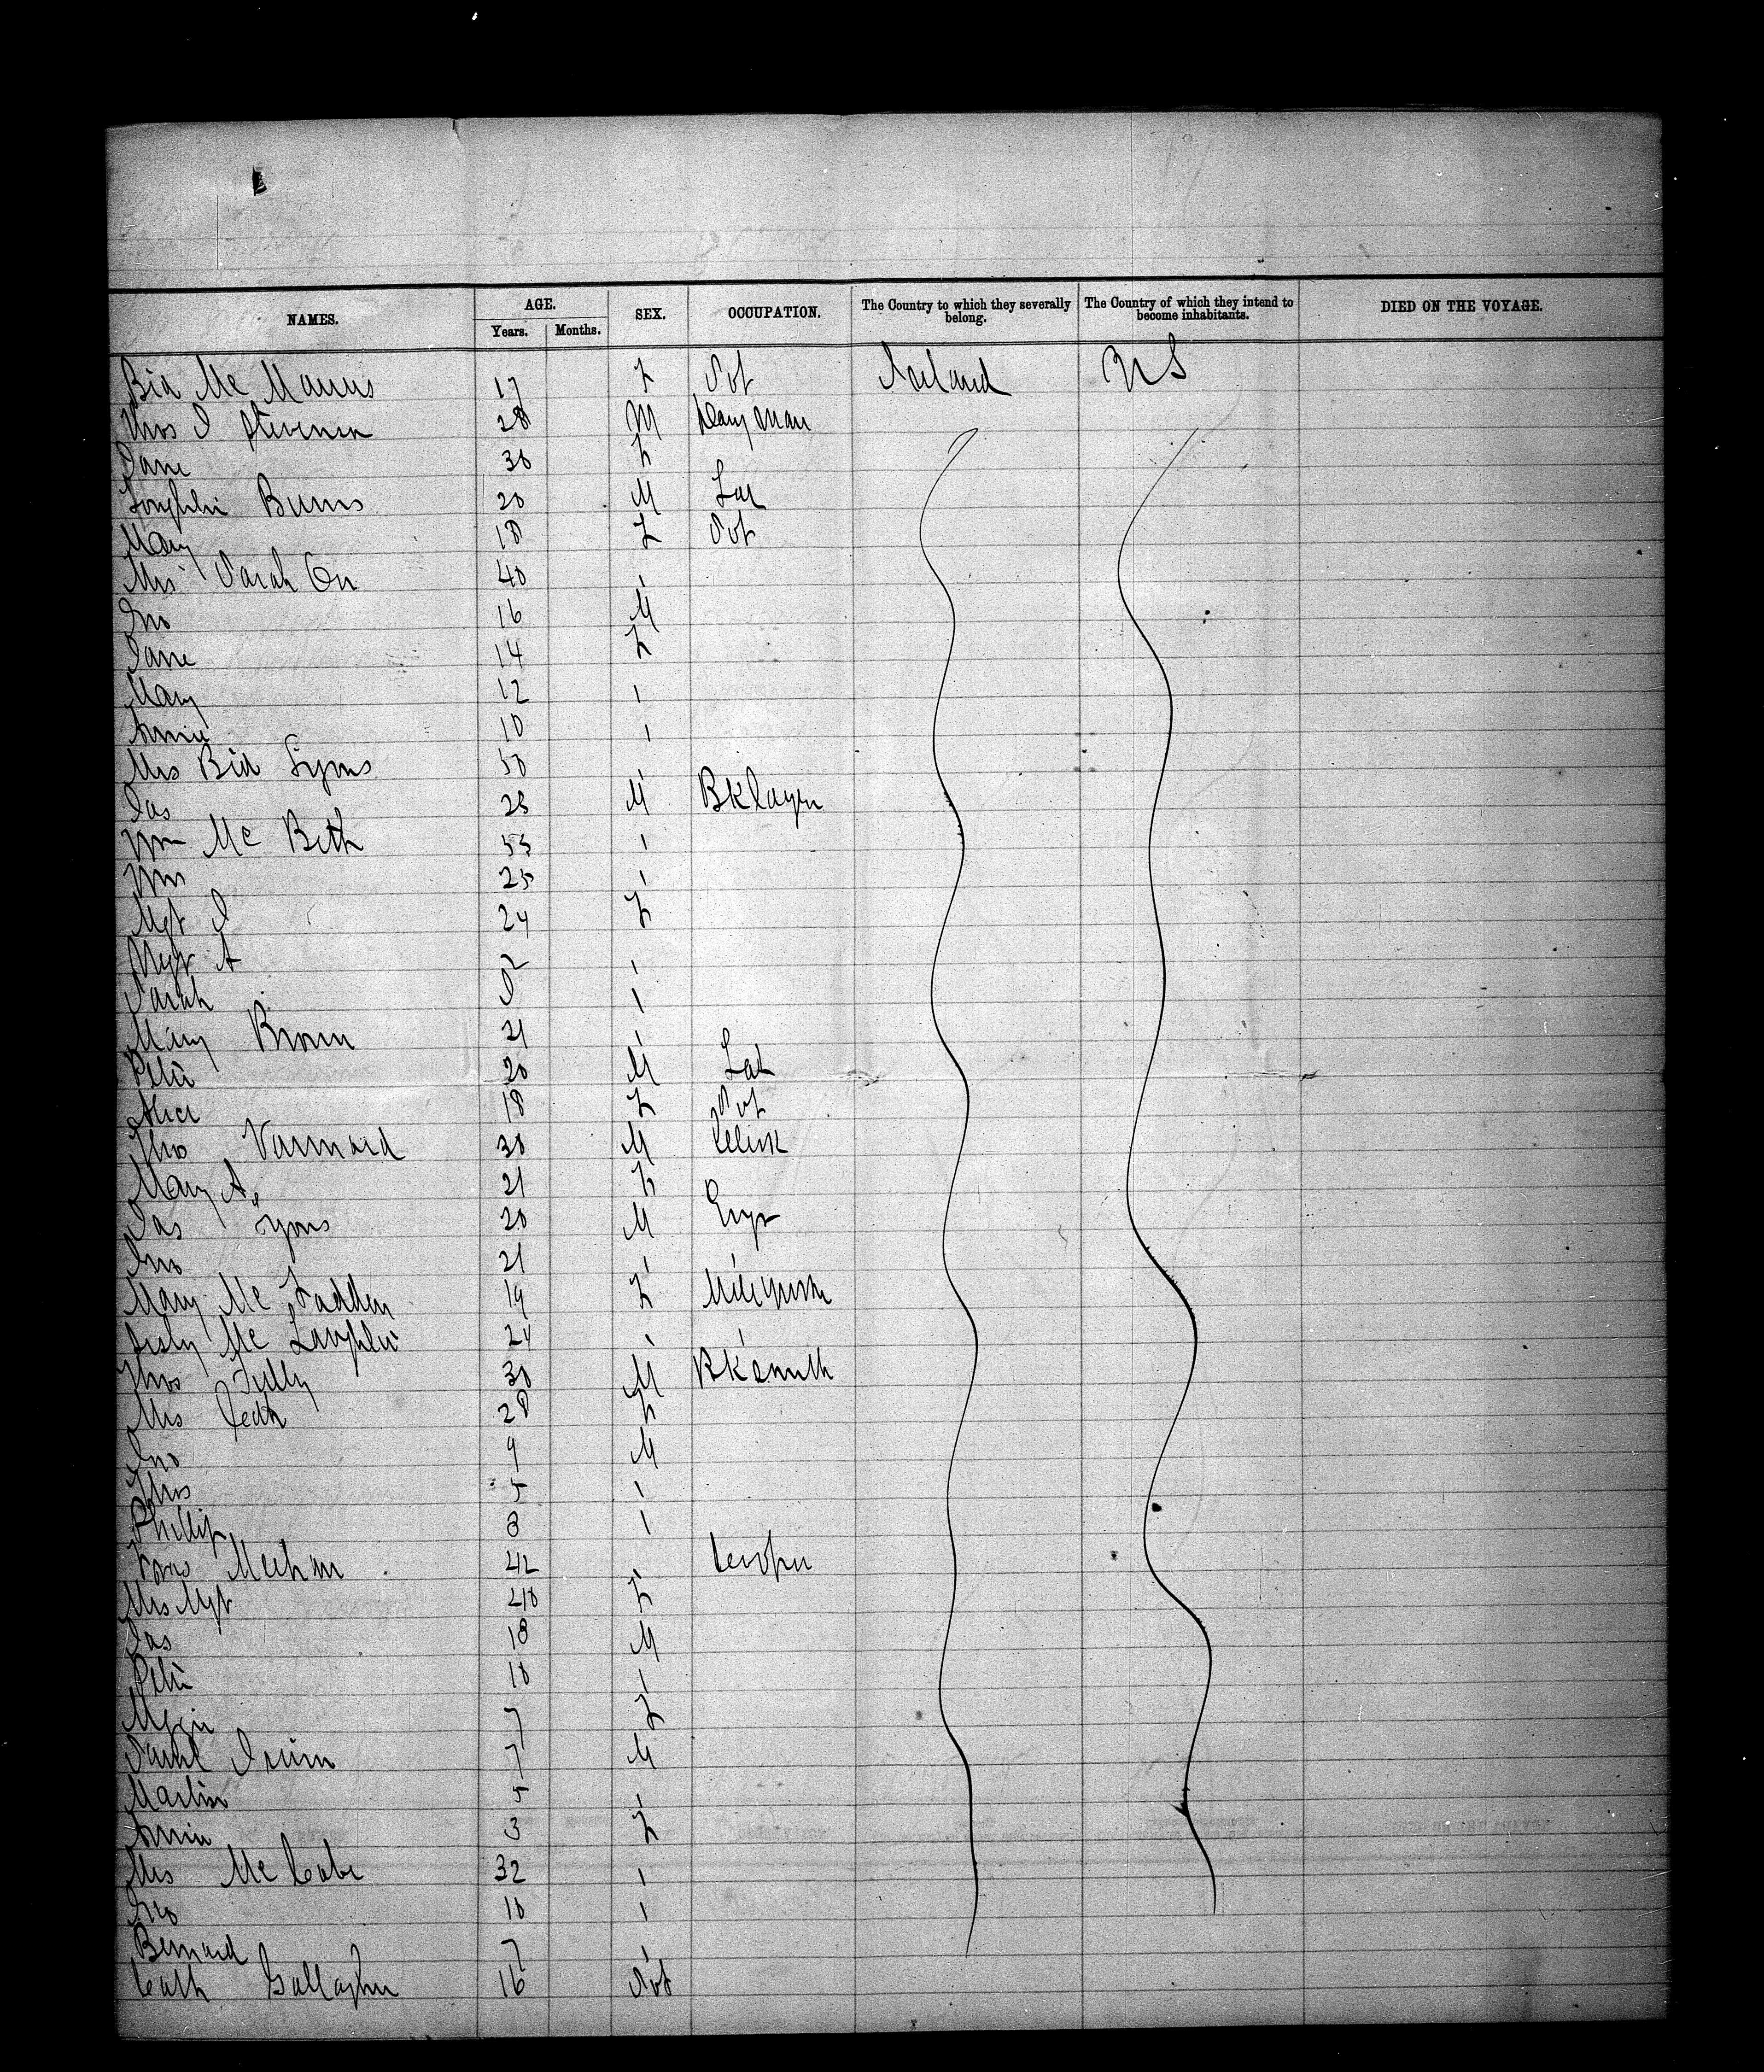 NAMES. AGE. SEX. OCCUPATION. The Country to which they severally belong. The Country of which they intend to become inhabitants. DIED ON THE VOYAGE.
Years. Months.
Bid Mc Manus 17 F Svt Ireland U S
Thos J Stevenson 28 M
Jane 30 F
Burns 20 M Lab
Mary 18 F Svt
Mrs Sarah Orr 40 "
Jno 16 M
Jane 14 F
Mary 12 "
Annie 10 "
Mrs Bid Lyons 50 "
Jas 25 M Bklayer
Wm Mc Beth 55 "
Wm 25 "
Mgt J 24 F
Mgt A "
Sarah "
Mary Brown 21 "
Peter 20 M Lab
Alice 18 F Svt
Thos 30 M Clerk
Mary A. 21 F
Jas Lyons 20 M Engr
Jno 21 " "
Mary Mc Fadden 19 F
Mc Laughlin 24 " "
Thos Tully 30 M Bksmith
Mrs Cath 28 F
Jno 9 M
Thos 5 "
Phillip 8 "
Meehan 42 " Cooper
Mrs Mgt 40 F
Jas 18 M
Peter 10 "
Maggie 7 F
Saml Irwin 7 M
Martin 5 "
Annie 3 F
Mrs Mc Cabe 32 "
Jno 10 "
Bernard 7 "
Cath Gallagher 16 Svt